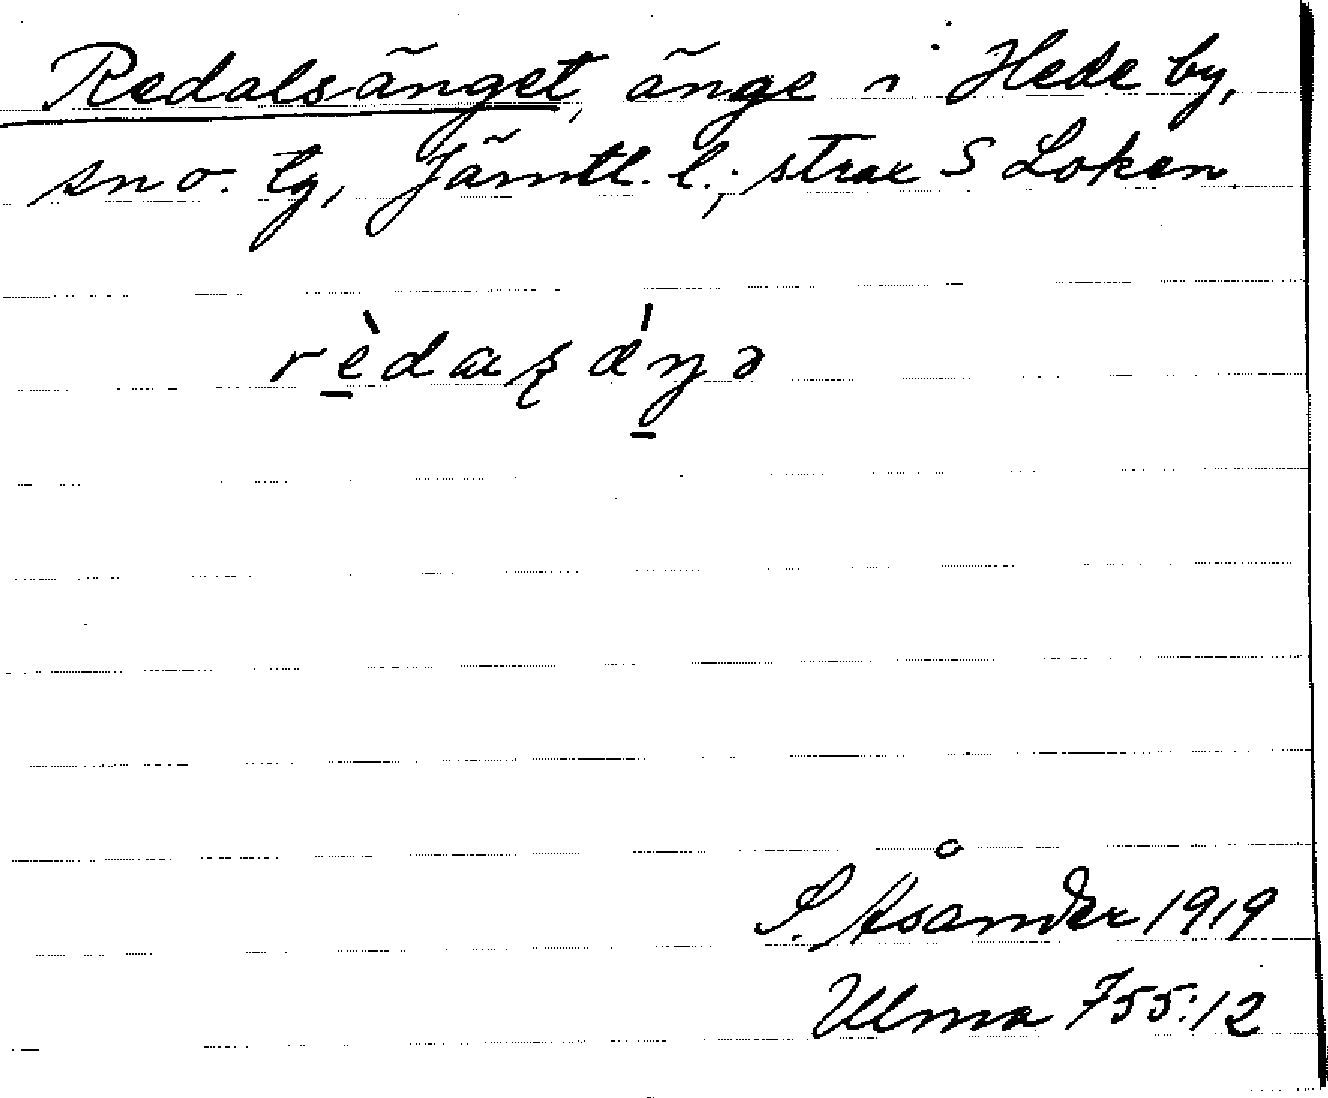 Redalsänget, änge i Hede by,
sn o. tg, Jämtl. l.; strax S Loken.
S. Åsander 1919
Ulma 755:12